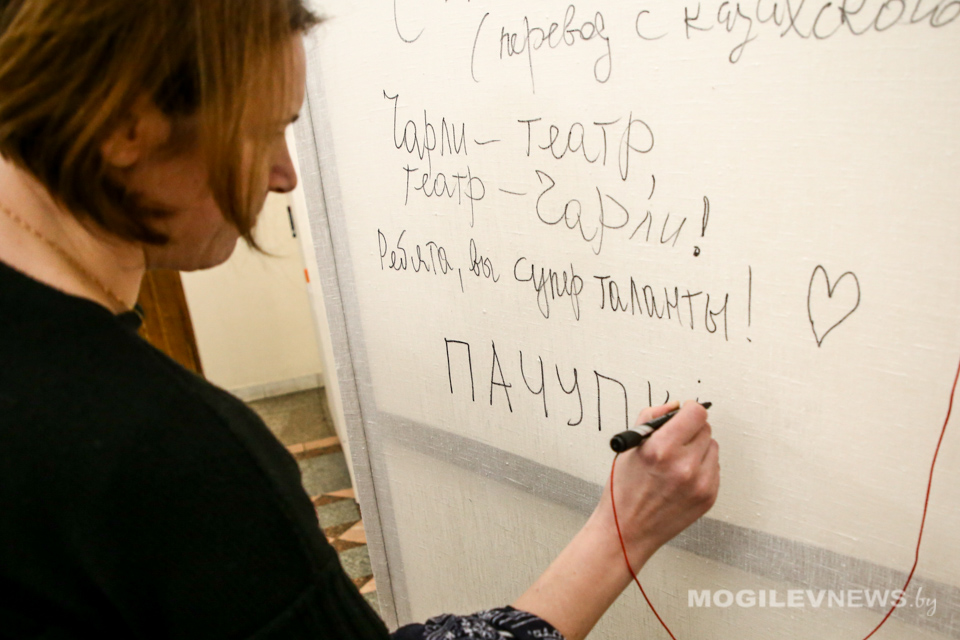 (перевод с казахского
Чарли – театр,
театр – Чарли!
Ребята, вы супер таланты!
ПАЧУПКі
MOGILEVNEWS.by